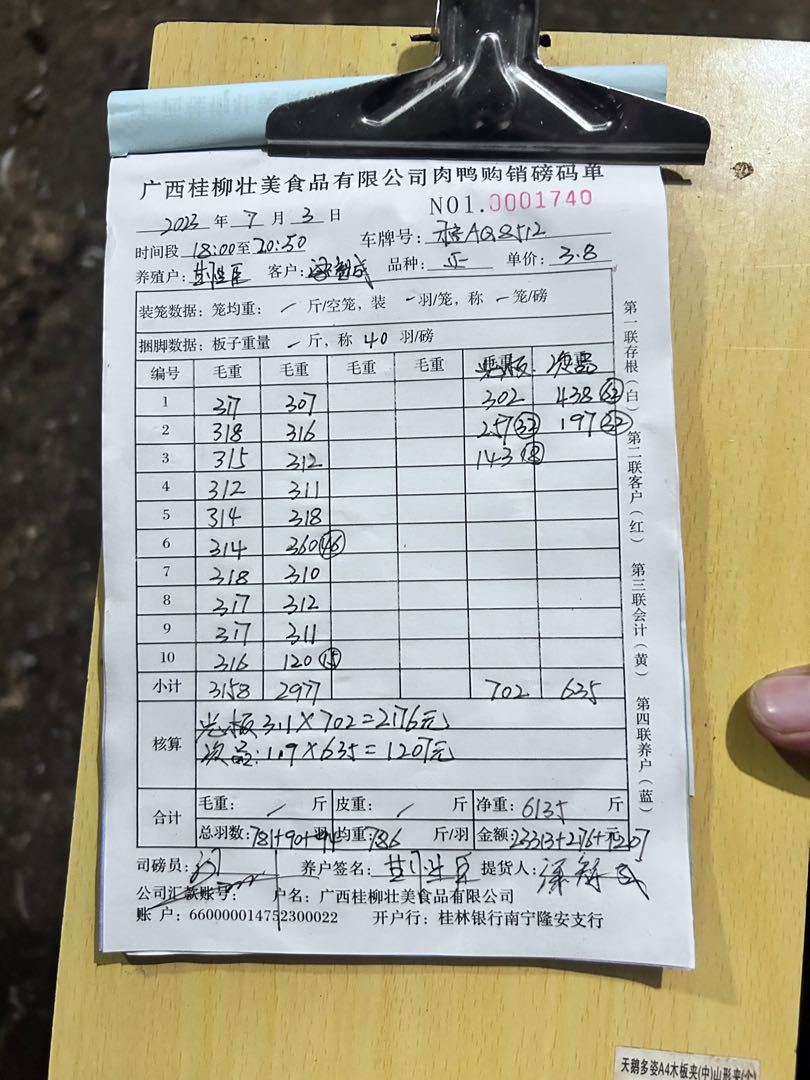 广西桂柳壮美食品有限公司肉鸭购销磅码单
NO1.0001740
2023 年 7 月 3 日
时间段 18:00至20:50 车牌号: AQ8512
养殖户: 客户: 品种: 单价: 3.8
装笼数据: 笼均重: / 斤/空笼, 装 - 羽/笼, 称 - 笼/磅
捆脚数据: 板子重量 - 斤, 称 40 羽/磅
编号 毛重 毛重 毛重 毛重 光板 次品
1 317 307 302 438 62
2 318 316 257 32 197 32
3 315 312 143 18
4 312 311
5 314 318
6 314 360 46
7 318 310
8 317 312
9 317 311
10 316 120 15
小计 3158 2977 702 635
核算 光板3.1×702=2176元
次品:1.9×635=1207元
合计 毛重: / 斤 皮重: / 斤 净重: 6135 斤
总羽数: 781+90+94 羽 均重: 7.86 斤/羽 金额: 23313+2176+1207
司磅员: 养户签名: 提货人:
公司汇款账号: 户名: 广西桂柳壮美食品有限公司
账 户: 660000014752300022 开户行: 桂林银行南宁隆安支行
第一联存根(白) 第二联客户(红) 第三联会计(黄) 第四联养户(蓝)
天鹅多姿A4木板夹(中)山形夹(个)